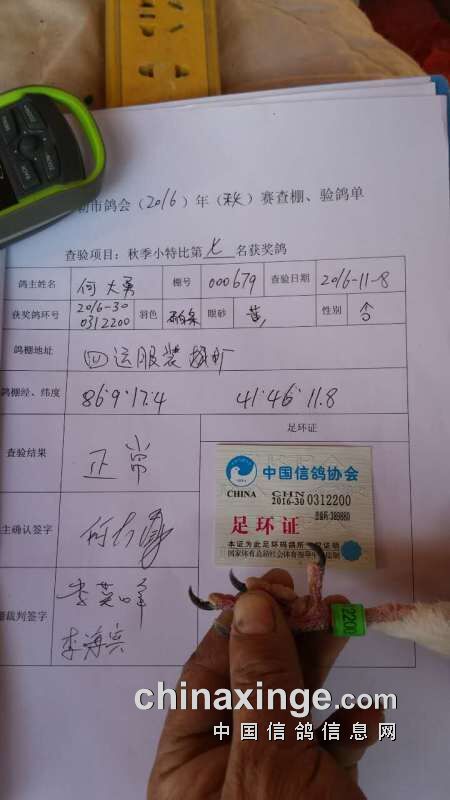 市鸽会（2016）年（秋）赛查棚、验鸽单
查验项目：秋季小特比第七名获奖鸽
鸽主姓名 何大勇 棚号 000679 查验日期 2016-11-8
获奖鸽环号 2016-30 0312200 羽色 眼砂 黄 性别
鸽棚地址 四运服装
鸽棚经、纬度 86°9'17.4 41°46'11.8
足环证
查验结果 正常
主确认签字 何大勇
裁判签字 李英峰
李海宾
中国信鸽协会
CHINA CHN
2016-30 0312200
足环证
本证为此足环码鸽所有权证明
国家体育总局社会体育指导中心监制
2200
chinaxinge.com
中国信鸽信息网